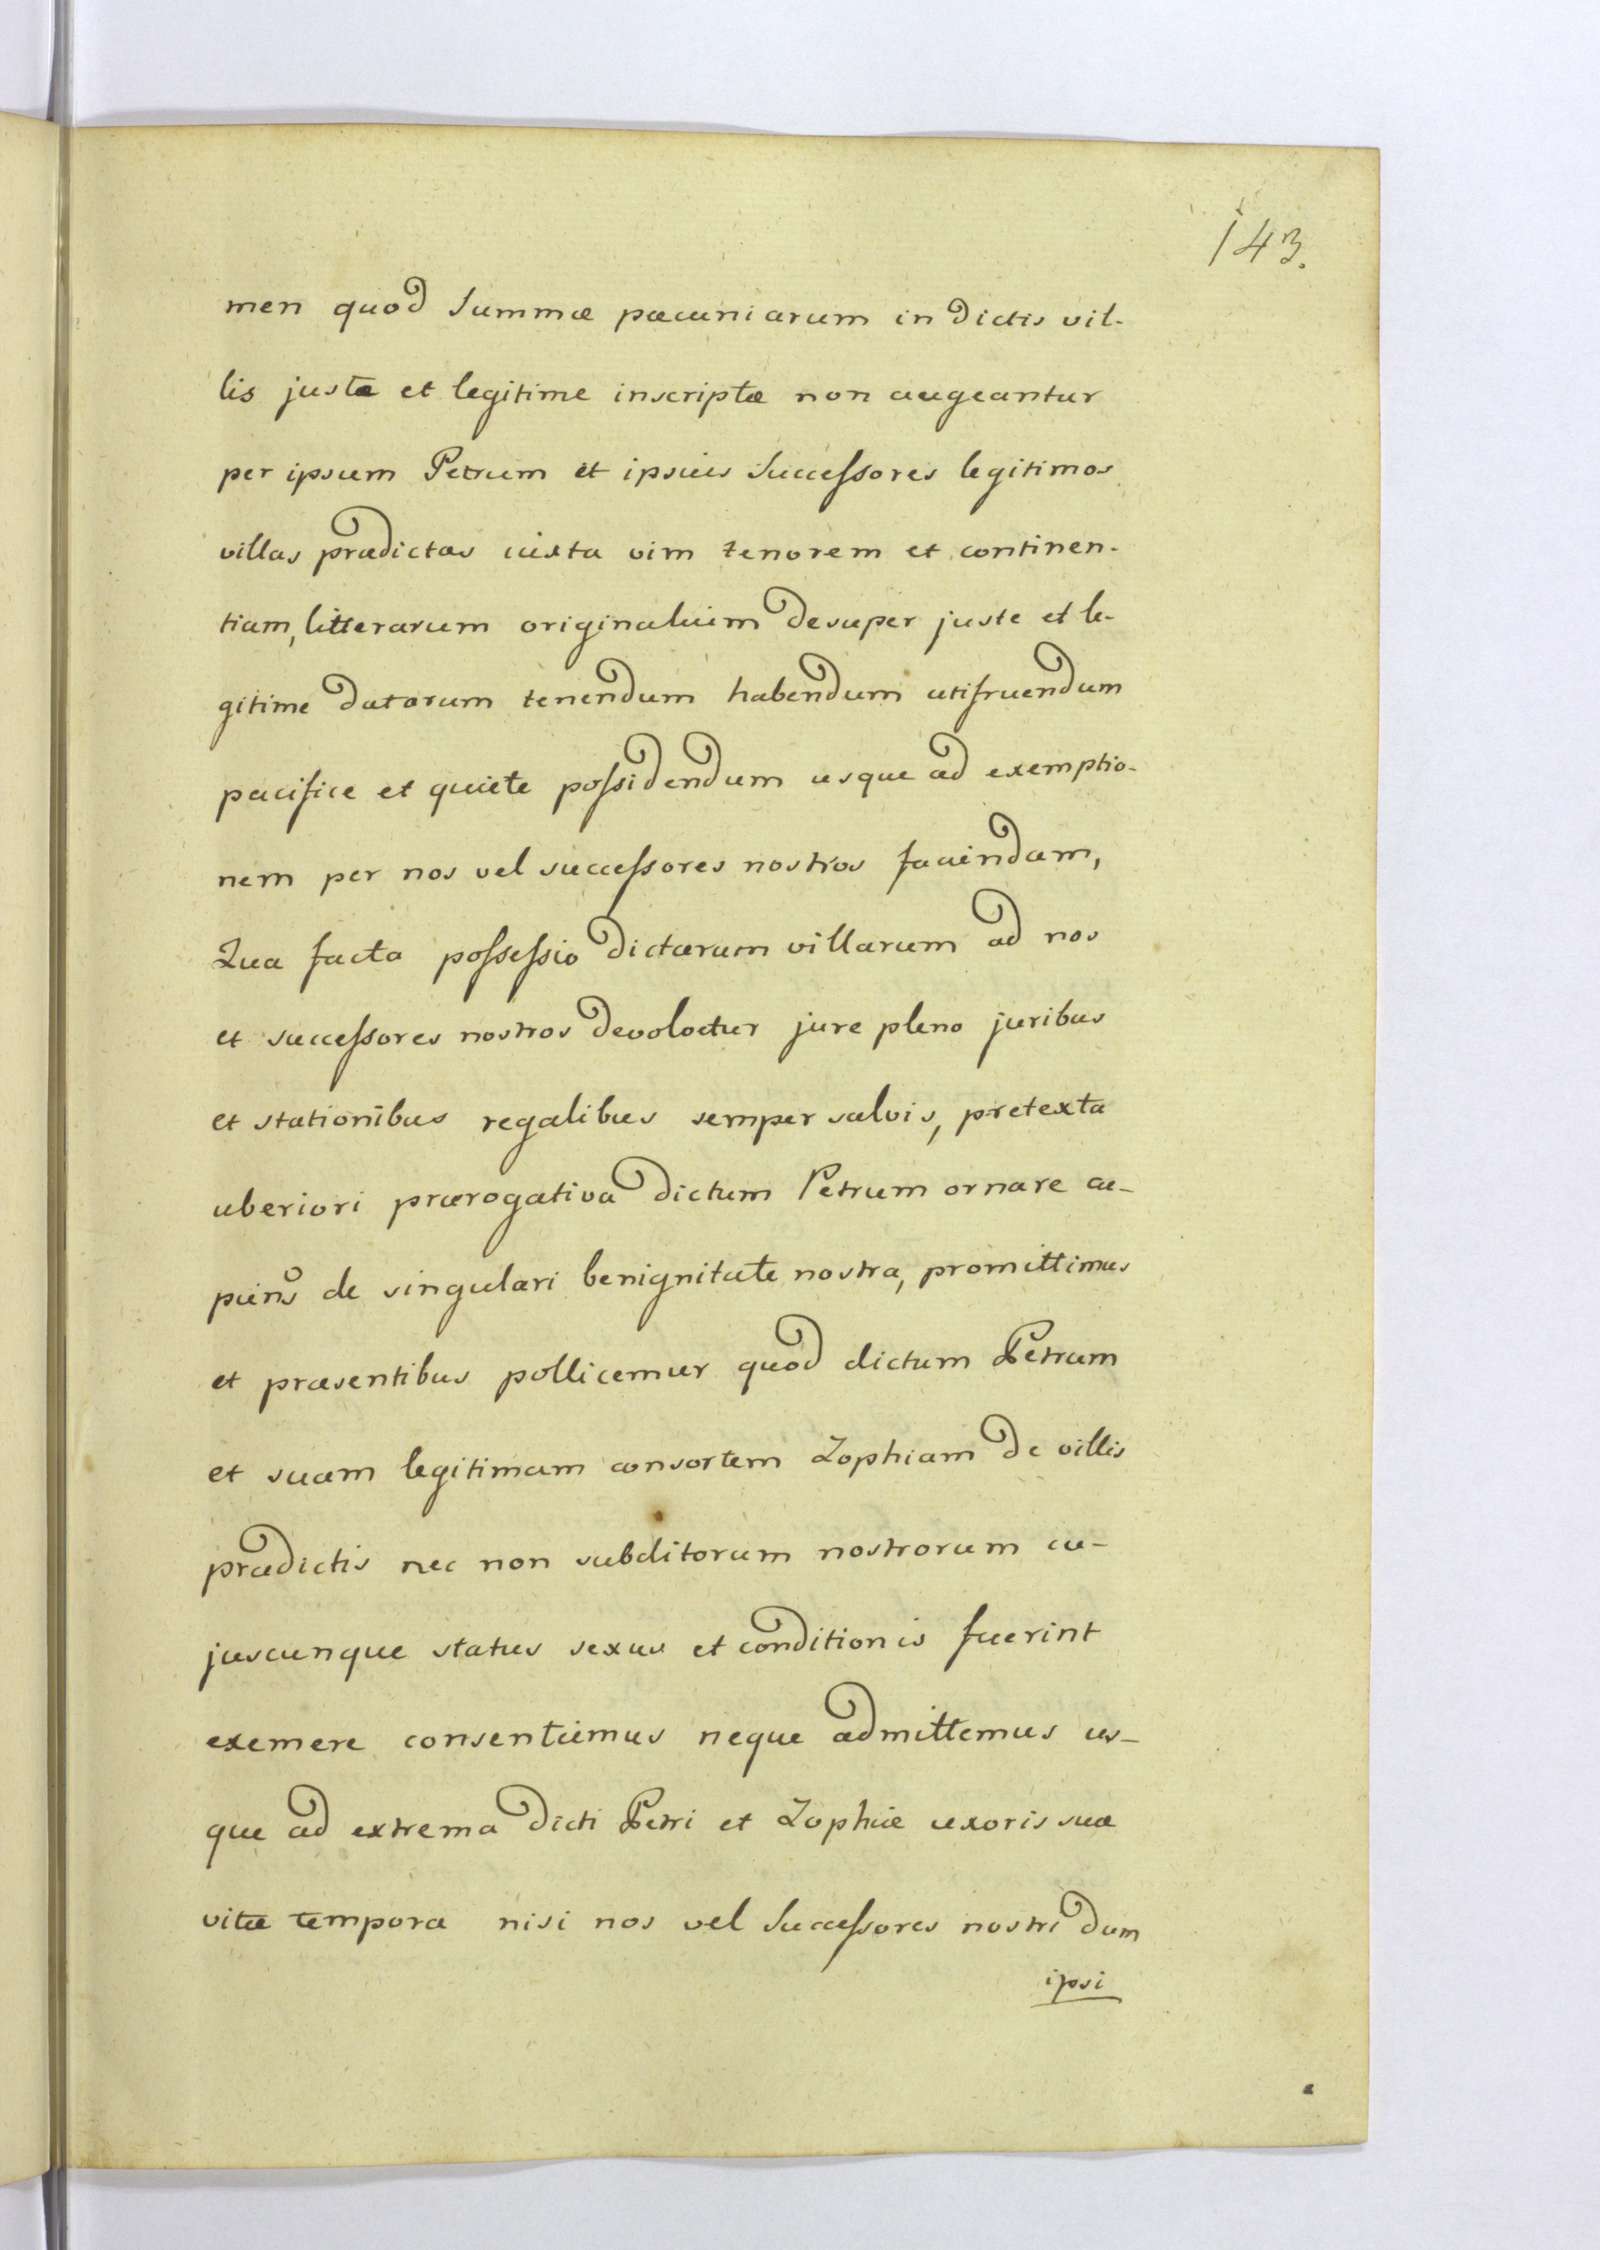 143.
men quod Summæ pæcuniarum in dictis vil-
lis justæ et legitime inscriptæ non augeantur
per ipsum Petrum et ipsius Successores legitimos
villas prædictas iuxta vim tenorem et continen-
tiam, litterarum originalium desuper juste et le-
gitime datarum tenendum habendum utifruendum
pacifice et quiete possidendum usque ad exemptio-
nem per nos vel successores nostros faciendam,
Qua facta possessio dictarum villarum ad nos
et successores nostros devoloetur jure pleno juribus
et stationibus regalibus semper salvis, pretexta
uberiori prærogativa dictum Petrum ornare cu-
piens de singulari benignitate nostra, promittimus
et præsentibus pollicemur quod dictum Petrum
et suam legitimam consortem Zophiam de villis
prædictis nec non subditorum nostrorum cu-
juscunque status sexus et conditionis fuerint
exemere consentiemus neque admittemus us-
que ad extrema dicti Petri et Zophiæ uxoris suæ
vitæ tempora nisi nos vel Successores nostri dum
ipsi